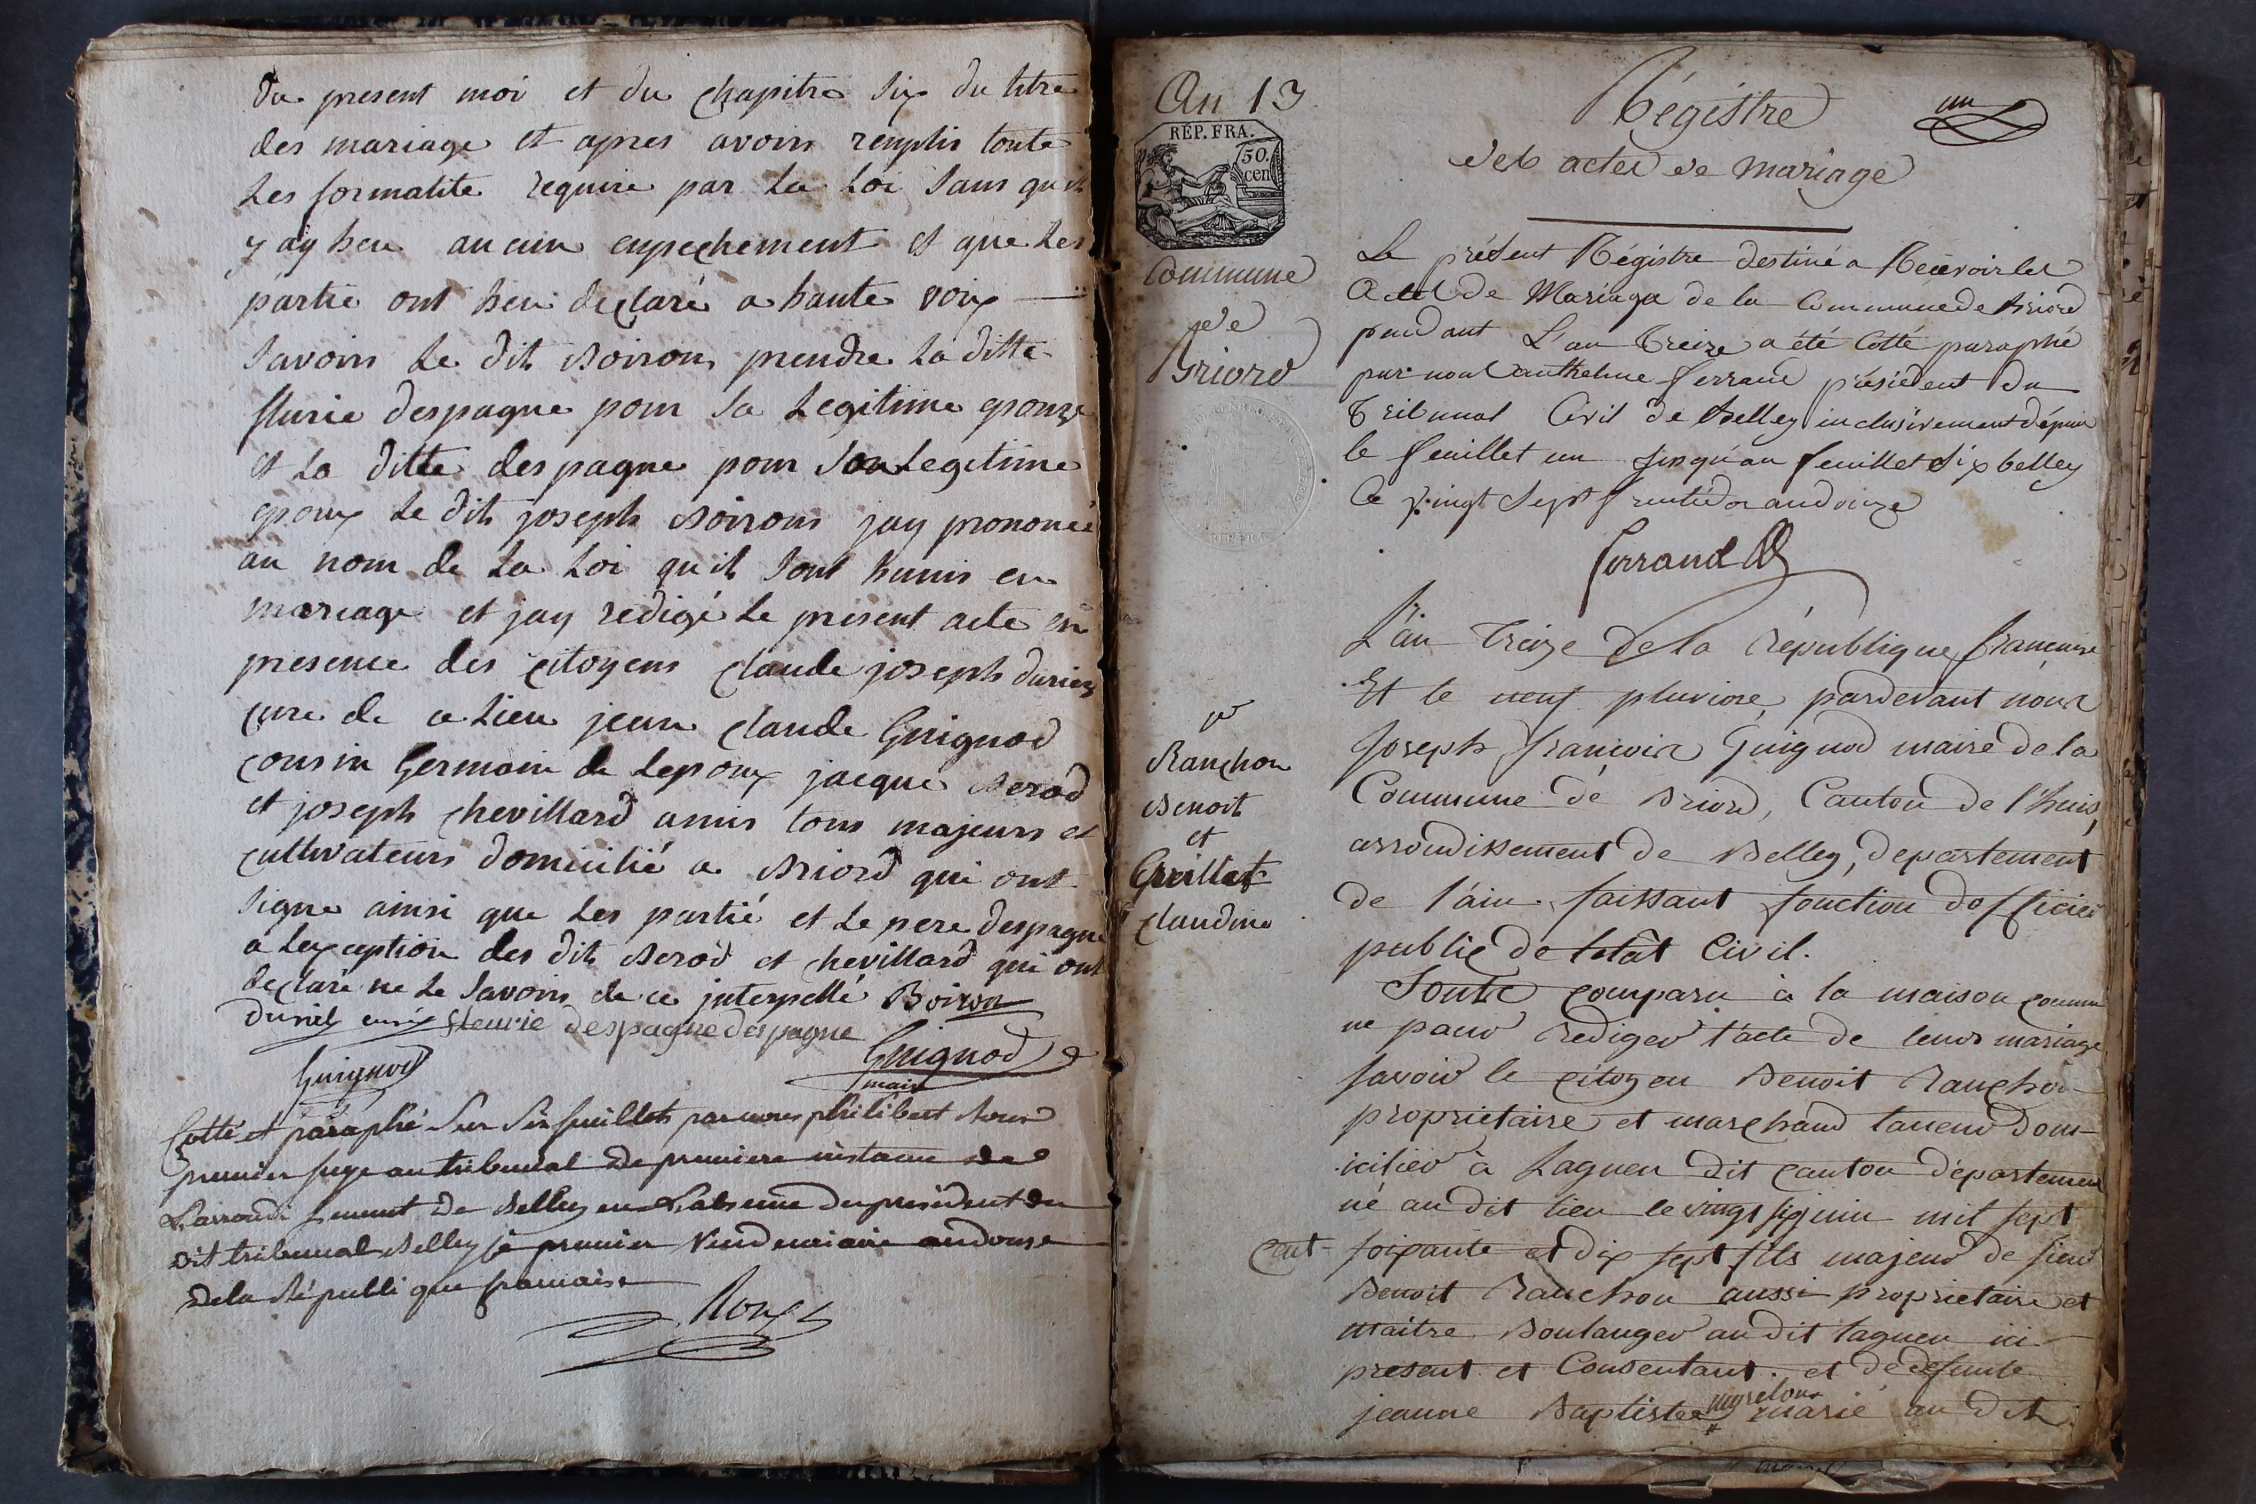 du present moi et du chapitre six du titre
des mariage et apres avoirs remplis toute
Les formalite require par La Loi sans qu'il
y ay heu aucun enpechement et que Les
partie ont heu declaré a haute voix
savoirs Le dit Boirons prendre La ditte
flurie despagne pour sa Legitime epouze
et La ditte despagne pour son Legitime
epoux Le dit joseph Boirons jay prononcé
au nom de La Loi qu'il sont hunis en
mariage et jay redigé Le present acte en
presence des citoyens claude joseph duriez
cure de ce Lieu jean claude Guignod
cousin Germain de Lepoux jacque Berod
et joseph chevillard amis tous majeurs et
cultivateurs domicilié a Briord qui ont
signe ainsi que Les partié et Le pere despagne
a Lexception des dit Berod et chevillard qui ont
declaré ne Le savoirs de ce interpellé Boiron
curé fleurie despagne despagne
Guignod Guignod
maire
Cotté et paraphé sur six feuillets par nous philibert Roux
premier juge au tribunal de premiere instance de
L'arrondissement de Belley en L'absence du president du
dit tribunal Belley le premier Vendemiaire an douze
de la République francaise
Roux
An 13
RÉP. FRA.
50. cen
Commune
de
Briord
Ranchon
Benoit
et
Grillet
claudine
un
Régistre
des actes de mariage
Le présent Régistre destiné a Recevoir les
Actes de Mariage de la Commune de Briord
pendant L'an treize a été Cotté paraphé
par nous anthelme ferrand président du
Tribunal Civil de Belley inclusivement dépuis
le feuillet un jusqu'au feuillet six belley
le vingt sept fructidor an douze
ferrand
L'an treize de la république française
Et le neuf pluviose, pardevant nous
Joseph françois Guignod maire de la
Commune de Briord, Canton de l'huis,
arrondissement de Belley, departement
de l'ain faissant fonction dofficier
public de letat Civil.
Sont comparu à la maison commu
ne pour rediger l'acte de leur mariage
savoir le citoyen Benoit Ranchon
proprietaire et marchand taneur dom-
icilier à Lagneu dit canton departement
né au dit lieu le vingt six juin mil sept
cent soixante et dix sept fils majeur de sieur
Benoit Ranchon aussi proprietaire et
maitre Boulanger au dit lagneu ici
present et Consentant. et de defunte
jeanne Baptiste marié au dit